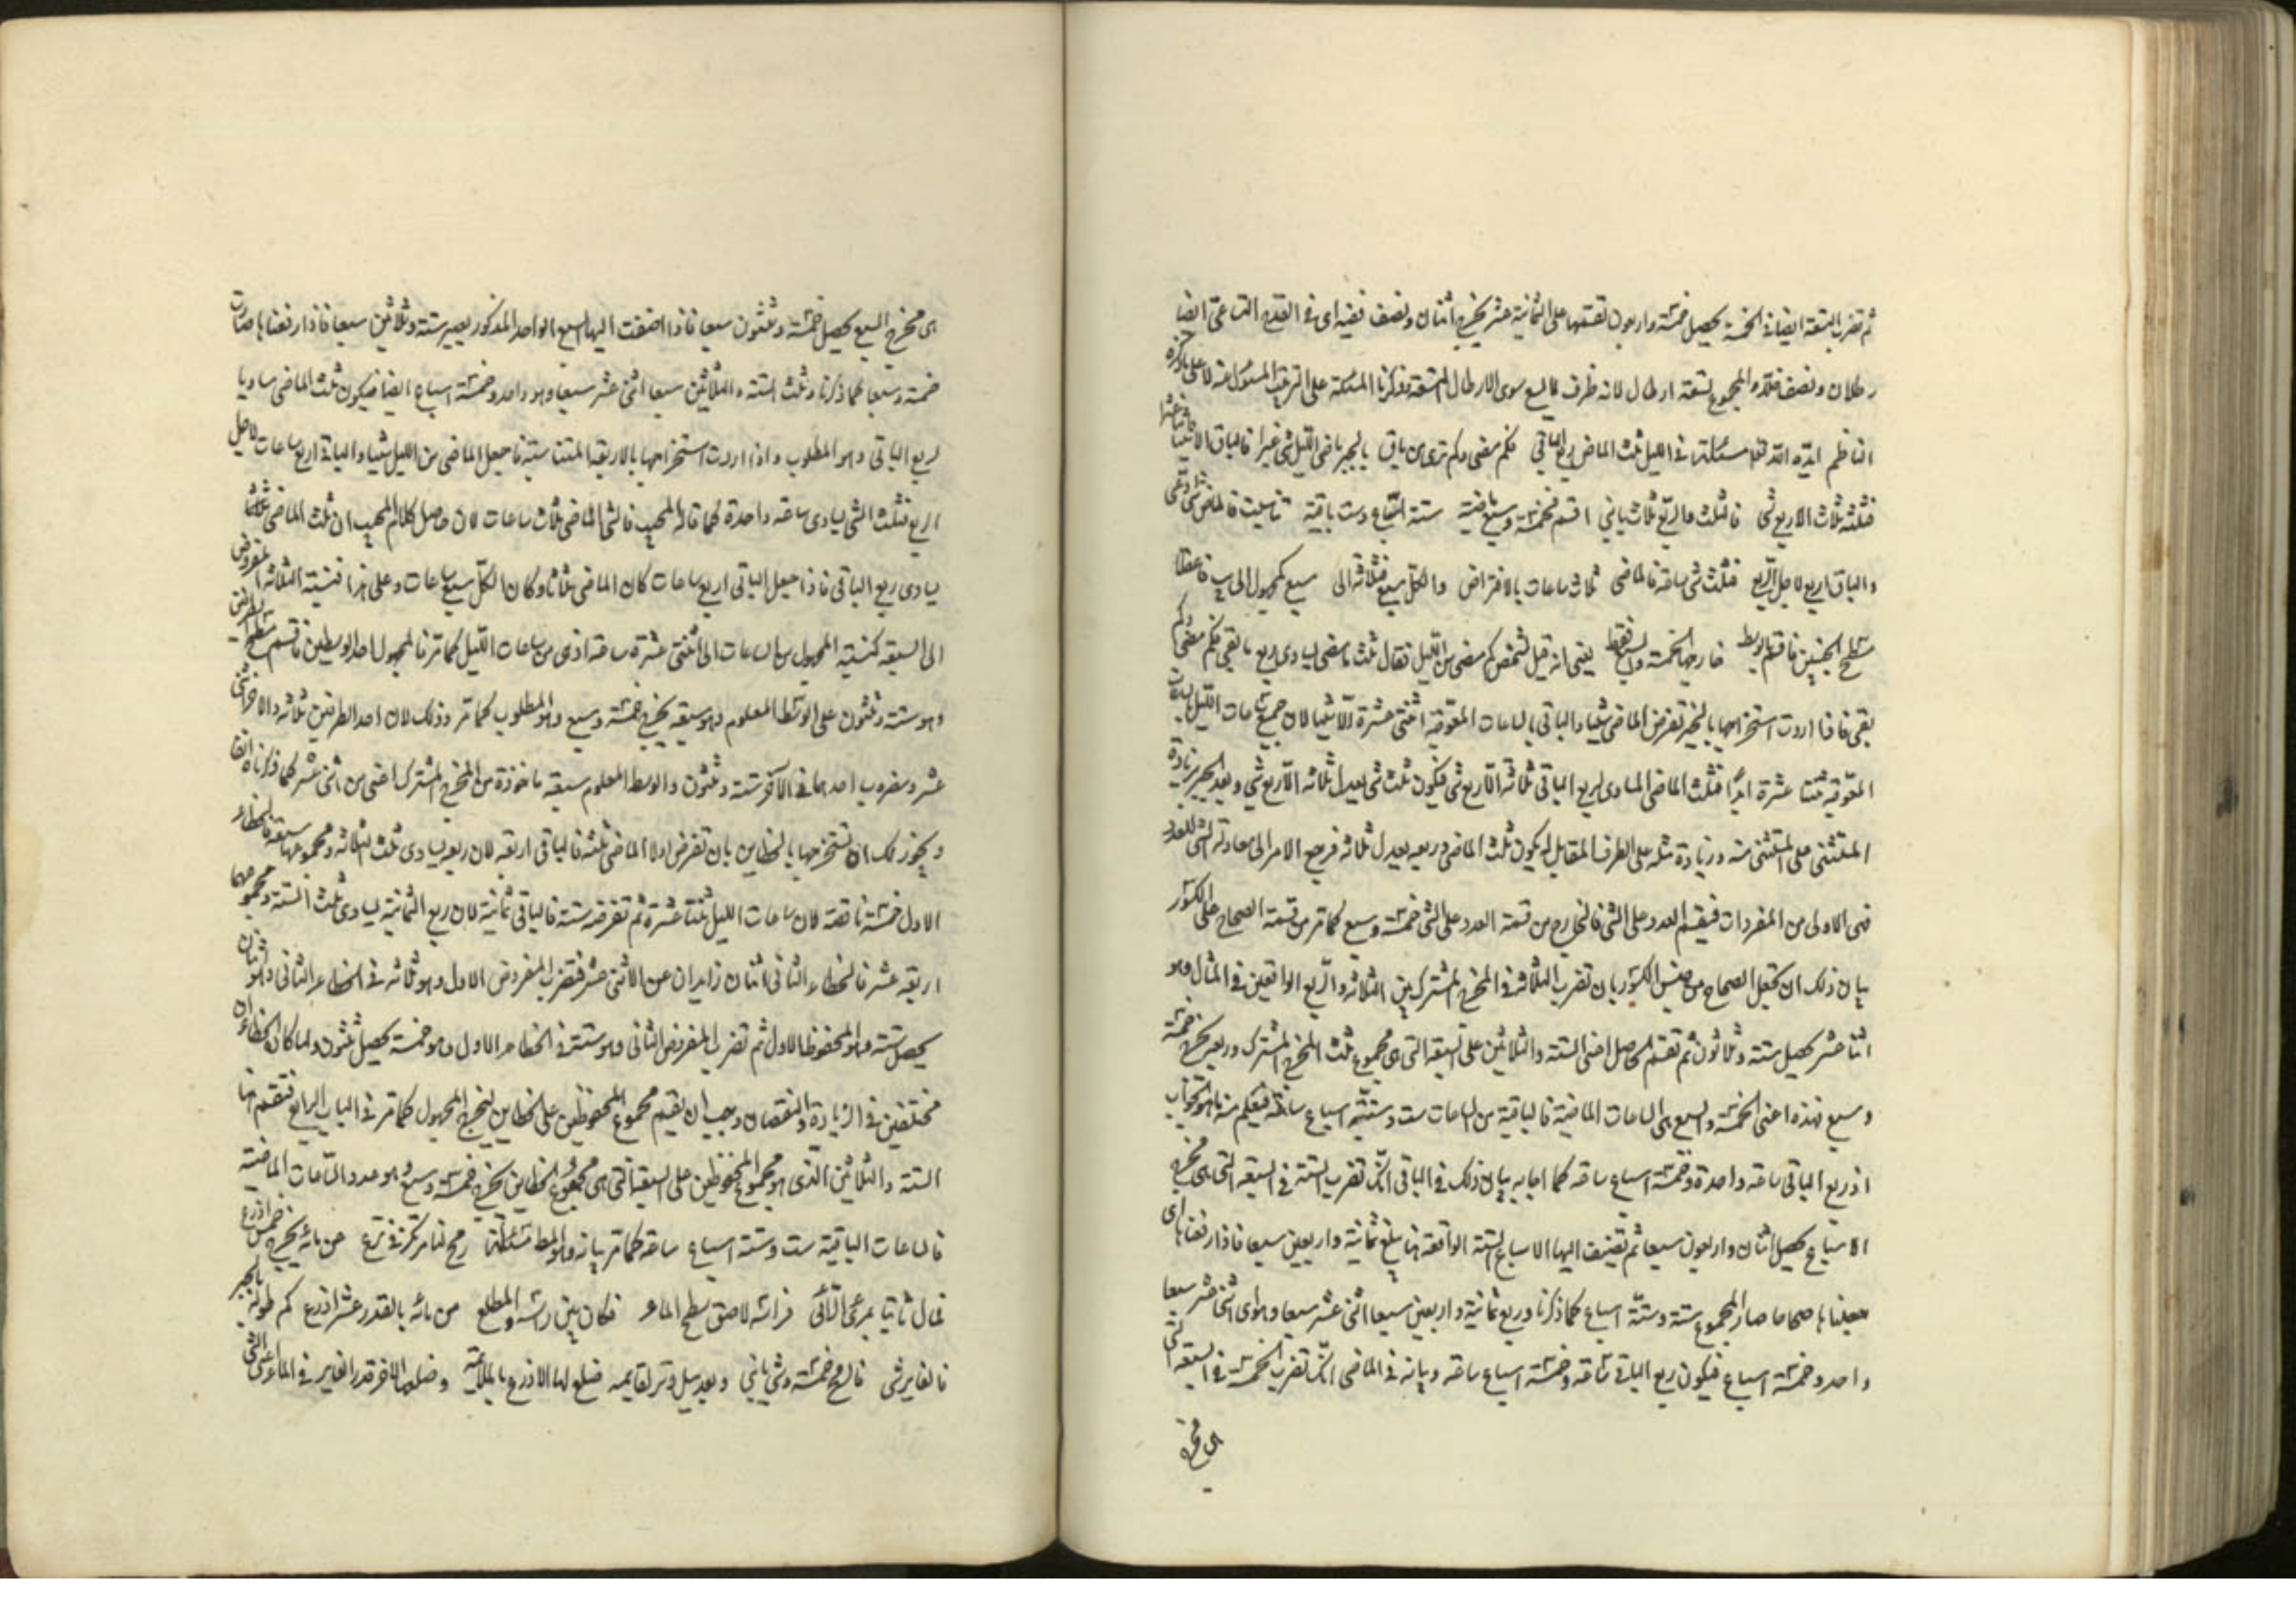 ثم تضرب التسعة ايضا في الخمسة يحصل خمسة واربعون تقسمها على الثمانية عشر يخرج اثنان ونصف ففيه اى فى القدح التساعى ايضا
رطلان ونصف فقد والمجموع تسعة ارطال لانه ظرف لا يسع سوى الارطال التسعة وذكرنا المسئلة على الترتيب المسئول عنه لا على ما ذكره
الناظم ايده الله تعالى مسئلة فى الليل ثلث الماضى ربع الباقي فكم مضى وكم ترى من باق بالجبر ماضى الليل شئ غبرا فالباق الاثنتا عشرا
فثلثه ثلاث الا ربع شئ فالثلث والربع ثلاث ياني اقسم فخمسة وسبع ماضية ستة اسباع وست باقية فالماض شئ
والباق اربع لاجل الربع فثلث شئ ساعة فالماضى ثلاث ساعات بالافتراض والكل سبع فثلاثة الى سبع كمجهول الى يب فاعقلا
مسطح الجنبين فاقسم بالوسط خارجها الخمسة والسبع فقط يعنى انه قيل لشخص كم مضى من الليل فقال ثلث ما مضى يساوى ربع ما بقى فكم مضى وكم
بقى فاذا اردت استخراجها بالجبر تفرض الماضى شيئا والباقى بالساعات المعوجة اثنتى عشرة الا شيئا لان جميع ساعات الليل بالساعات
المعوجة ثنتا عشرة ابدا فثلث الماضى المساوى لربع الباقى ثلاثة الا ربع شئ فيكون ثلث شئ يعدل ثلاثة الا ربع شئ وبعد الجبر بزيادة
المستثنى على المستثنى منه وزيادة مثله على الطرف المقابل له يكون ثلث الماضى وربعه يعدل ثلاثة فرجع الامر الى معادلة الشئ للعدد
فهى الاولى من المفردات فيقسم العدد على الشئ فالخارج من قسمة العدد على الشئ خمسة وسبع كما مر من قسمة الصحاح على الكسور
بيان ذلك ان تجعل الصحاح من جنس الكسور بان تضرب الثلاثة فى المخرج المشترك بين الثلاثة والربع الواقعين فى المثال وهو
اثنا عشر يحصل ستة وثلاثون ثم تقسم الحاصل اعنى الستة والثلاثين على السبعة التى هى مجموع ثلث المخرج المشترك وربعه يخرج خمسة
وسبع فهذه اعنى الخمسة والسبع هى الساعات الماضية فالباقية من الساعات ست وستة اسباع ساعة فيعلم منه ما هو الجواب
اذ ربع الباقى ساعة واحدة وخمسة اسباع ساعة كما اجابه بيان ذلك فى الباقى انك تضرب الستة فى السبعة التى هى مخرج
الاسباع يحصل اثنان واربعون سبعا ثم تضيف اليها الاسباع الستة الواقعة بها يبلغ ثمانية واربعين سبعا فاذا رفعناها اى
جعلناها صحاحا صار المجموع ستة وستة اسباع كما ذكرنا وربع ثمانية واربعين سبعا اثنى عشر سبعا وهو اى اثنى عشر سبعا
واحد وخمسة اسباع فيكون ربع الباقى ساعة وخمسة اسباع ساعة وبيانه فى الماضى انك تضرب الخمسة فى السبعة التى
هى مخرج
هى مخرج السبع يحصل خمسة وثلثون سبعا فاذا اضفت اليها السبع الواحد المذكور يصير ستة وثلاثين سبعا فاذا رفعناها صارت
خمسة وسبعا كما ذكرنا وثلث الستة والثلاثين سبعا اثنى عشر سبعا وهو واحد وخمسة اسباع ايضا فيكون ثلث الماضى مساويا
لربع الباقى وهو المطلوب واذا اردت استخراجها بالاربعة المتناسبة فاجعل الماضى من الليل شيئا والباقى اربع ساعات لاجل
الربع فثلث الشئ يساوى ساعة واحدة كما قاله المجيب فالشئ الماضى ثلاث ساعات لان حاصل كلام المجيب ان ثلث الماضى
يساوى ربع الباقى فاذا جعل الباقى اربع ساعات كان الماضى ثلاثا وكان الكل سبع ساعات وعلى هذا فنسبة الثلاثة المفروض
الى السبعة كنسبة المجهول من الساعات الى اثنتى عشرة ساعة اذى من ساعات الليل كما مر فالمجهول احد الوسطين فاقسم مسطح الطرفين
وهو ستة وثلثون على الوسط المعلوم وهو سبعة يخرج خمسة وسبع وهو المطلوب كما مر وذلك لان احد الطرفين ثلاثة والآخر اثنى
عشر ومضروب احدهما فى الآخر ستة وثلثون والوسط المعلوم سبعة ماخوذة من المخرج المشترك اعنى من اثنى عشر كما ذكرناه انفا
ويجوز لك ان تستخرجها بالخطأين بان تفرض اولا الماضى ثلثة فالباقى اربعة لان ربعه يساوى ثلث الثلاثة ومجموعهما سبعة فالخطاء
الاول خمسة ناقصة لان ساعات الليل ثنتا عشرة ثم تفرضه ستة فالباقى ثمانية لان ربع الثمانية يساوى ثلث الستة ومجموعهما
اربعة عشر فالخطاء الثانى اثنان زايدان عن الاثنى عشر فتضرب المفروض الاول وهو ثلاثة فى الخطاء الثانى وهو اثنان
يحصل ستة وهو المحفوظ الاول ثم تضرب المفروض الثانى وهو ستة فى الخطاء الاول وهو خمسة يحصل ثلثون ولما كان الخطاءان
مختلفين فى الزيادة والنقصان وجب ان يقسم مجموع المحفوظين على الخطاين ليخرج المجهول كما مر فى الباب الرابع فتقسم هنا
الستة والثلاثين الذى هو مجموع المحفوظين على السبعة التى هى مجموع الخطاين يخرج خمسة وسبع وهو عدد الساعات الماضية
فالساعات الباقية ست وستة اسباع ساعة كما مر بيانه وهو المط مسئلة رمح لنا مركز فى ترع عن مائه يخرج خمس اذرع
فمال ثابتا بمرءى الرائى فراسه لاصق سطح الماء فكان بين راسه والمطلع من مائه بالقدر عشر اذرع كم طوله بالجبر
فالغاير شى فالرمح خمسة وشى يانى وبعد ميل وتر لقايمه ضلع لها الاذرع بالملائمة وضلعها الآخر قدر الغاير فى الماء اعنى الشئ